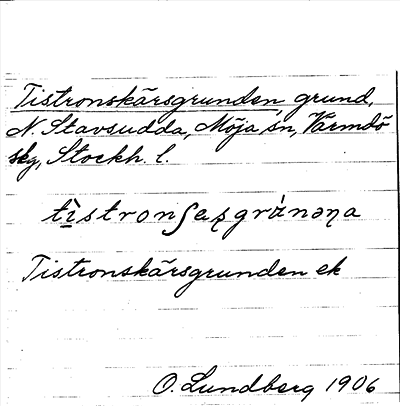 Tistronskärsgrunden, grund,
N. Stavsudda, Möja sn, Värmdö
skg, Stockh. l.
tìstronʃeʂgrànəɳa
Tistronskärsgrunden ek
O. Lundberg 1906